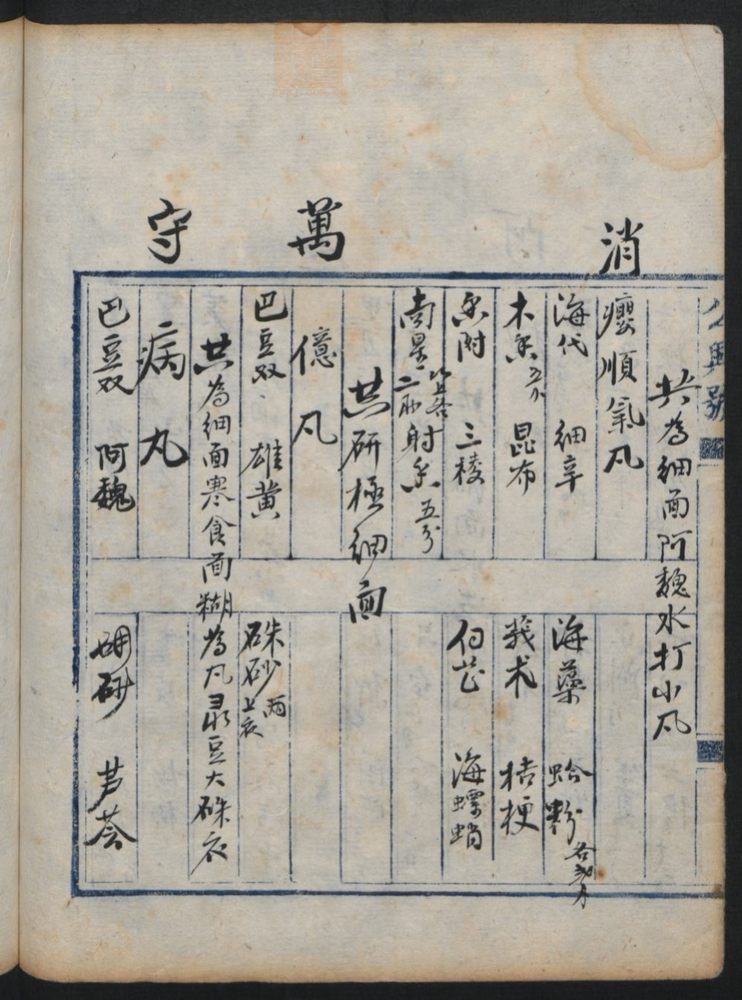 公興號
共為細面阿魏水打小凡
消
瘿順氣凡
海代 細辛 海藻 蛤粉
木香五分 昆布 莪术 桔梗
香附 三棱 白芷 海螵蛸
南星 二 以上各 射香五分
共研極細面
萬
億凡
巴豆双 雄黄 硃砂 上衣
共為細面寒食面糊為凡彔豆大硃衣
守
病丸
巴豆双 阿魏 硇砂 芦荟